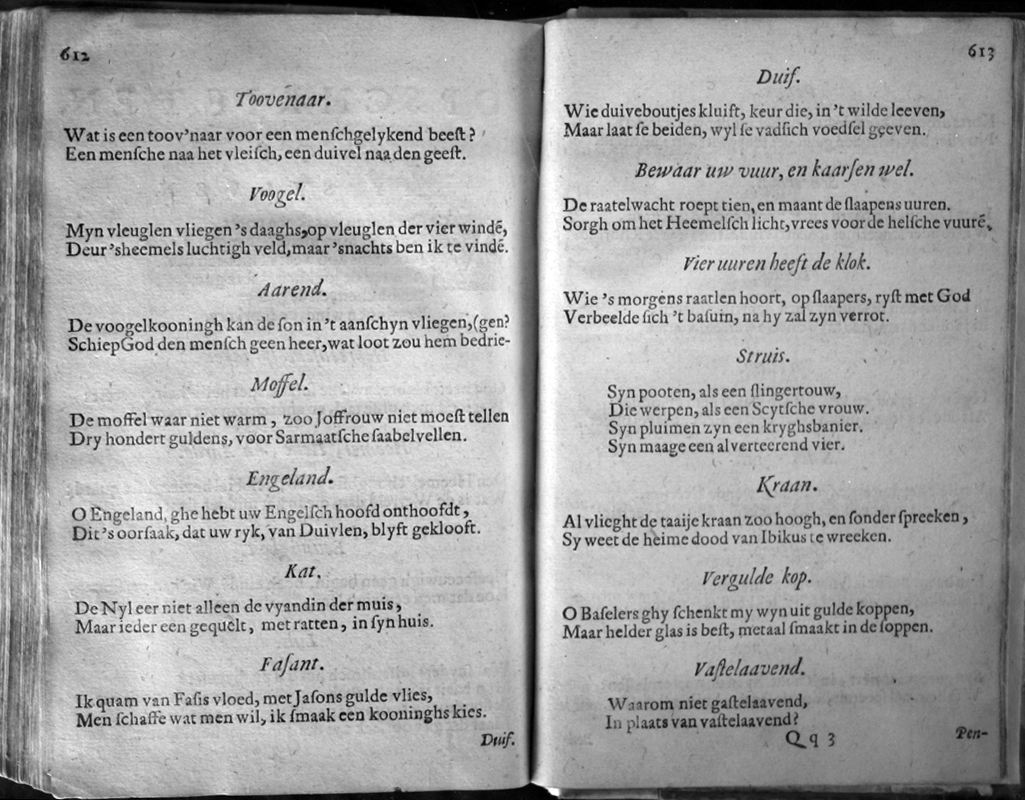 612
Toovenaar.
Wat is een toov'naar voor een menſchgelykend beeſt?
Een menſche naa het vleiſch, een duivel naa den geeſt.
Voogel.
Myn vleuglen vliegen 's daaghs, op vleuglen der vier windē,
Deur 'sheemels luchtigh veld, maar 'snachts ben ik te vindē.
Aarend.
De voogelkooningh kan de ſon in 't aanſchyn vliegen, (gen?
Schiep God den menſch geen heer, wat loot zou hem bedrie-
Moffel.
De moffel waar niet warm, zoo Joffrouw niet moeſt tellen
Dry hondert guldens, voor Sarmaatſche ſaabelvellen.
Engeland.
O Engeland, ghe hebt uw Engelſch hoofd onthoofdt,
Dit 's oorſaak, dat uw ryk, van Duivlen, blyft geklooft.
Kat.
De Nyl eer niet alleen de vyandin der muis,
Maar ieder een gequëlt, met ratten, in ſyn huis.
Faſant.
Ik quam van Faſis vloed, met Jaſons gulde vlies,
Men ſchaffe wat men wil, ik ſmaak een kooninghs kies.
Duif.
613
Duif.
Wie duiveboutjes kluift, keur die, in 't wilde leeven,
Maar laat ſe beiden, wyl ſe vadſich voedſel geeven.
Bewaar uw vuur, en kaarſen wel.
De raatelwacht roept tien, en maant de ſlaapens uuren.
Sorgh om het Heemelſch licht, vrees voor de helſche vuurē.
Vier uuren heeft de klok.
Wie 's morgens raatlen hoort, op ſlaapers, ryſt met God
Verbeelde ſich 't baſuin, na hy zal zyn verrot.
Struis.
Syn pooten, als een ſlingertouw,
Die werpen, als een Scytſche vrouw.
Syn pluimen zyn een kryghsbanier.
Syn maage een al verteerend vier.
Kraan.
Al vlieght de taaije kraan zoo hoogh, en ſonder ſpreeken,
Sy weet de heime dood van Ibikus te wreeken.
Vergulde kop.
O Baſelers ghy ſchenkt my wyn uit gulde koppen,
Maar helder glas is beſt, metaal ſmaakt in de ſoppen.
Vaſtelaavend.
Waarom niet gaſtelaavend,
In plaats van vaſtelaavend?
Q q 3
Pen-